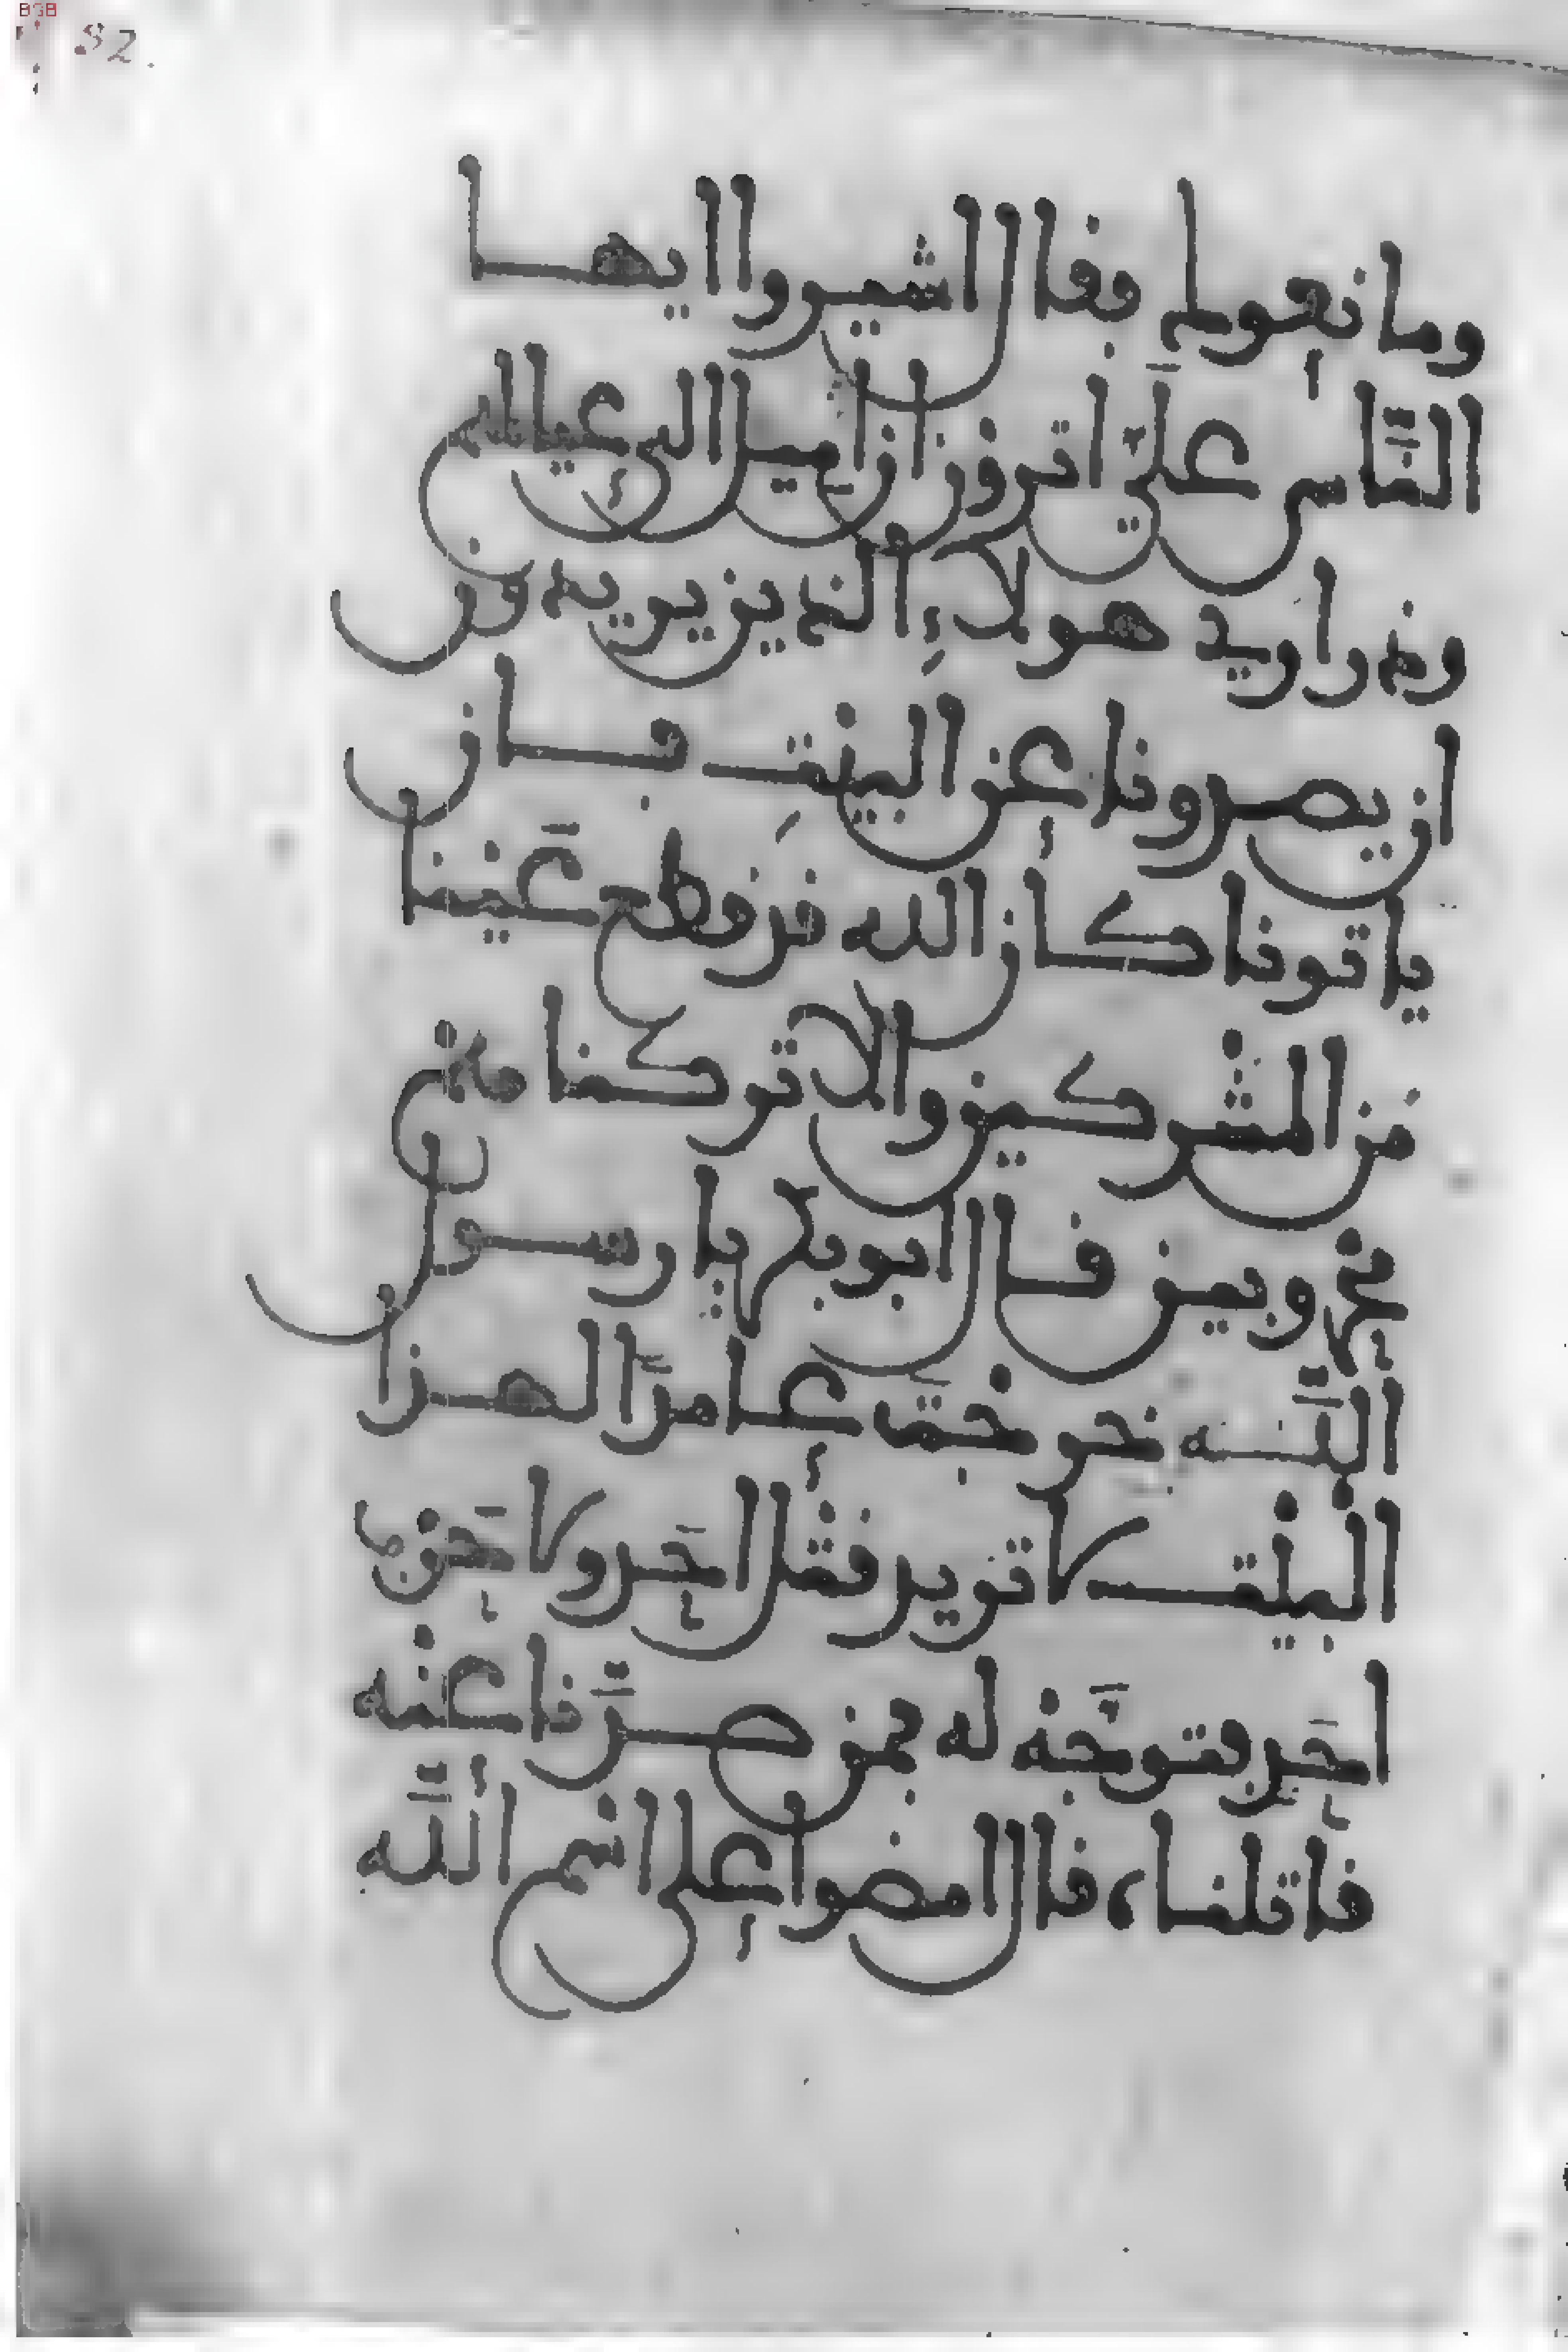 82.
ومانعوك فقال اشيروا ايها
الناس علي اترون ان اميل الى عيالهم
وذراري هولاء الذين يريدون
ان يصدونا عن البيت فان
ياتونا كان الله قد قطع عينا
من المشركين والا تركناهم
محروبين قال ابو بكر يا رسول
الله خرجت عامدا لهذا
البيت لا تريد قتل احد ولا حرب
احد فتوجه له فمن صدنا عنه
قاتلناه قال امضوا على اسم الله